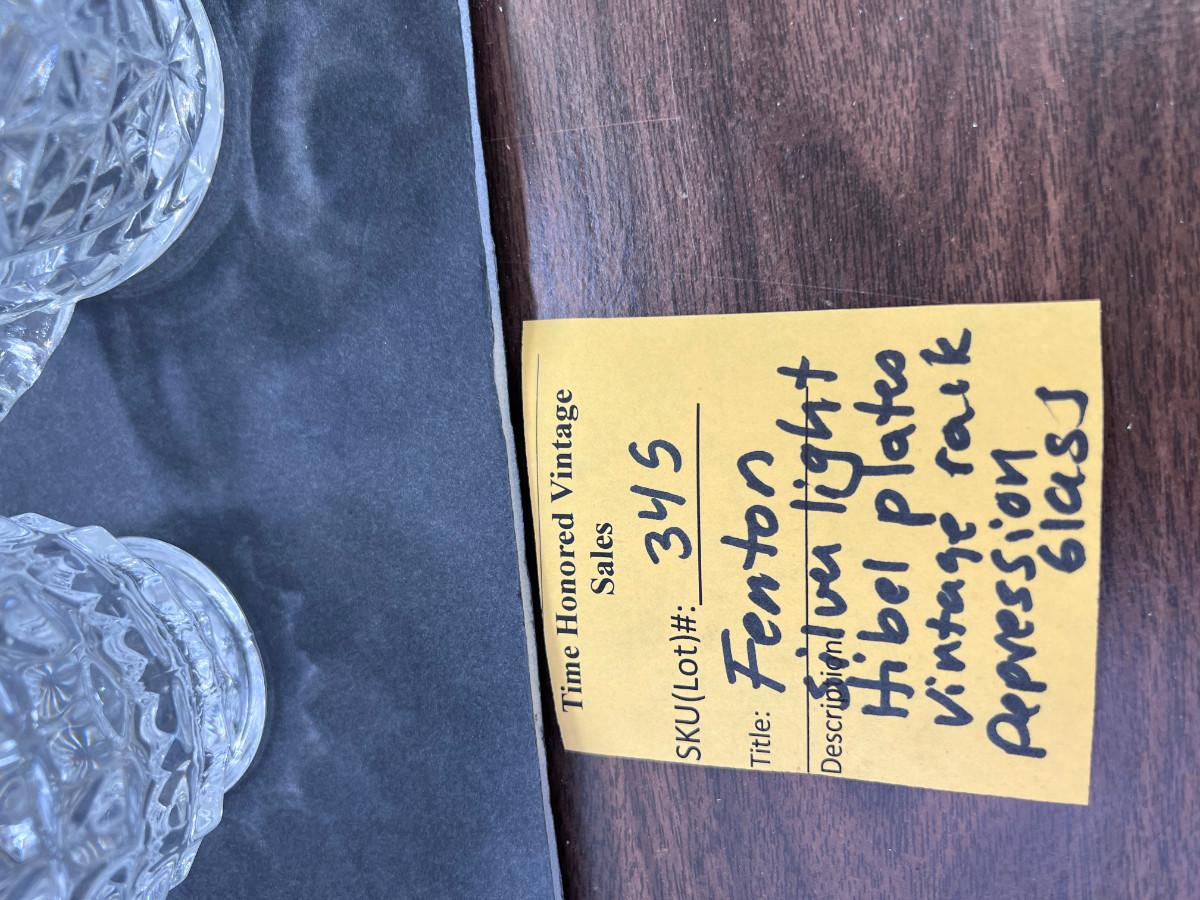 Time Honored Vintage
Sales
SKU(Lot)#: 345
Title: Fenton
Silver light
Description:
Hibel plates
Vintage rack
Depression
Glass